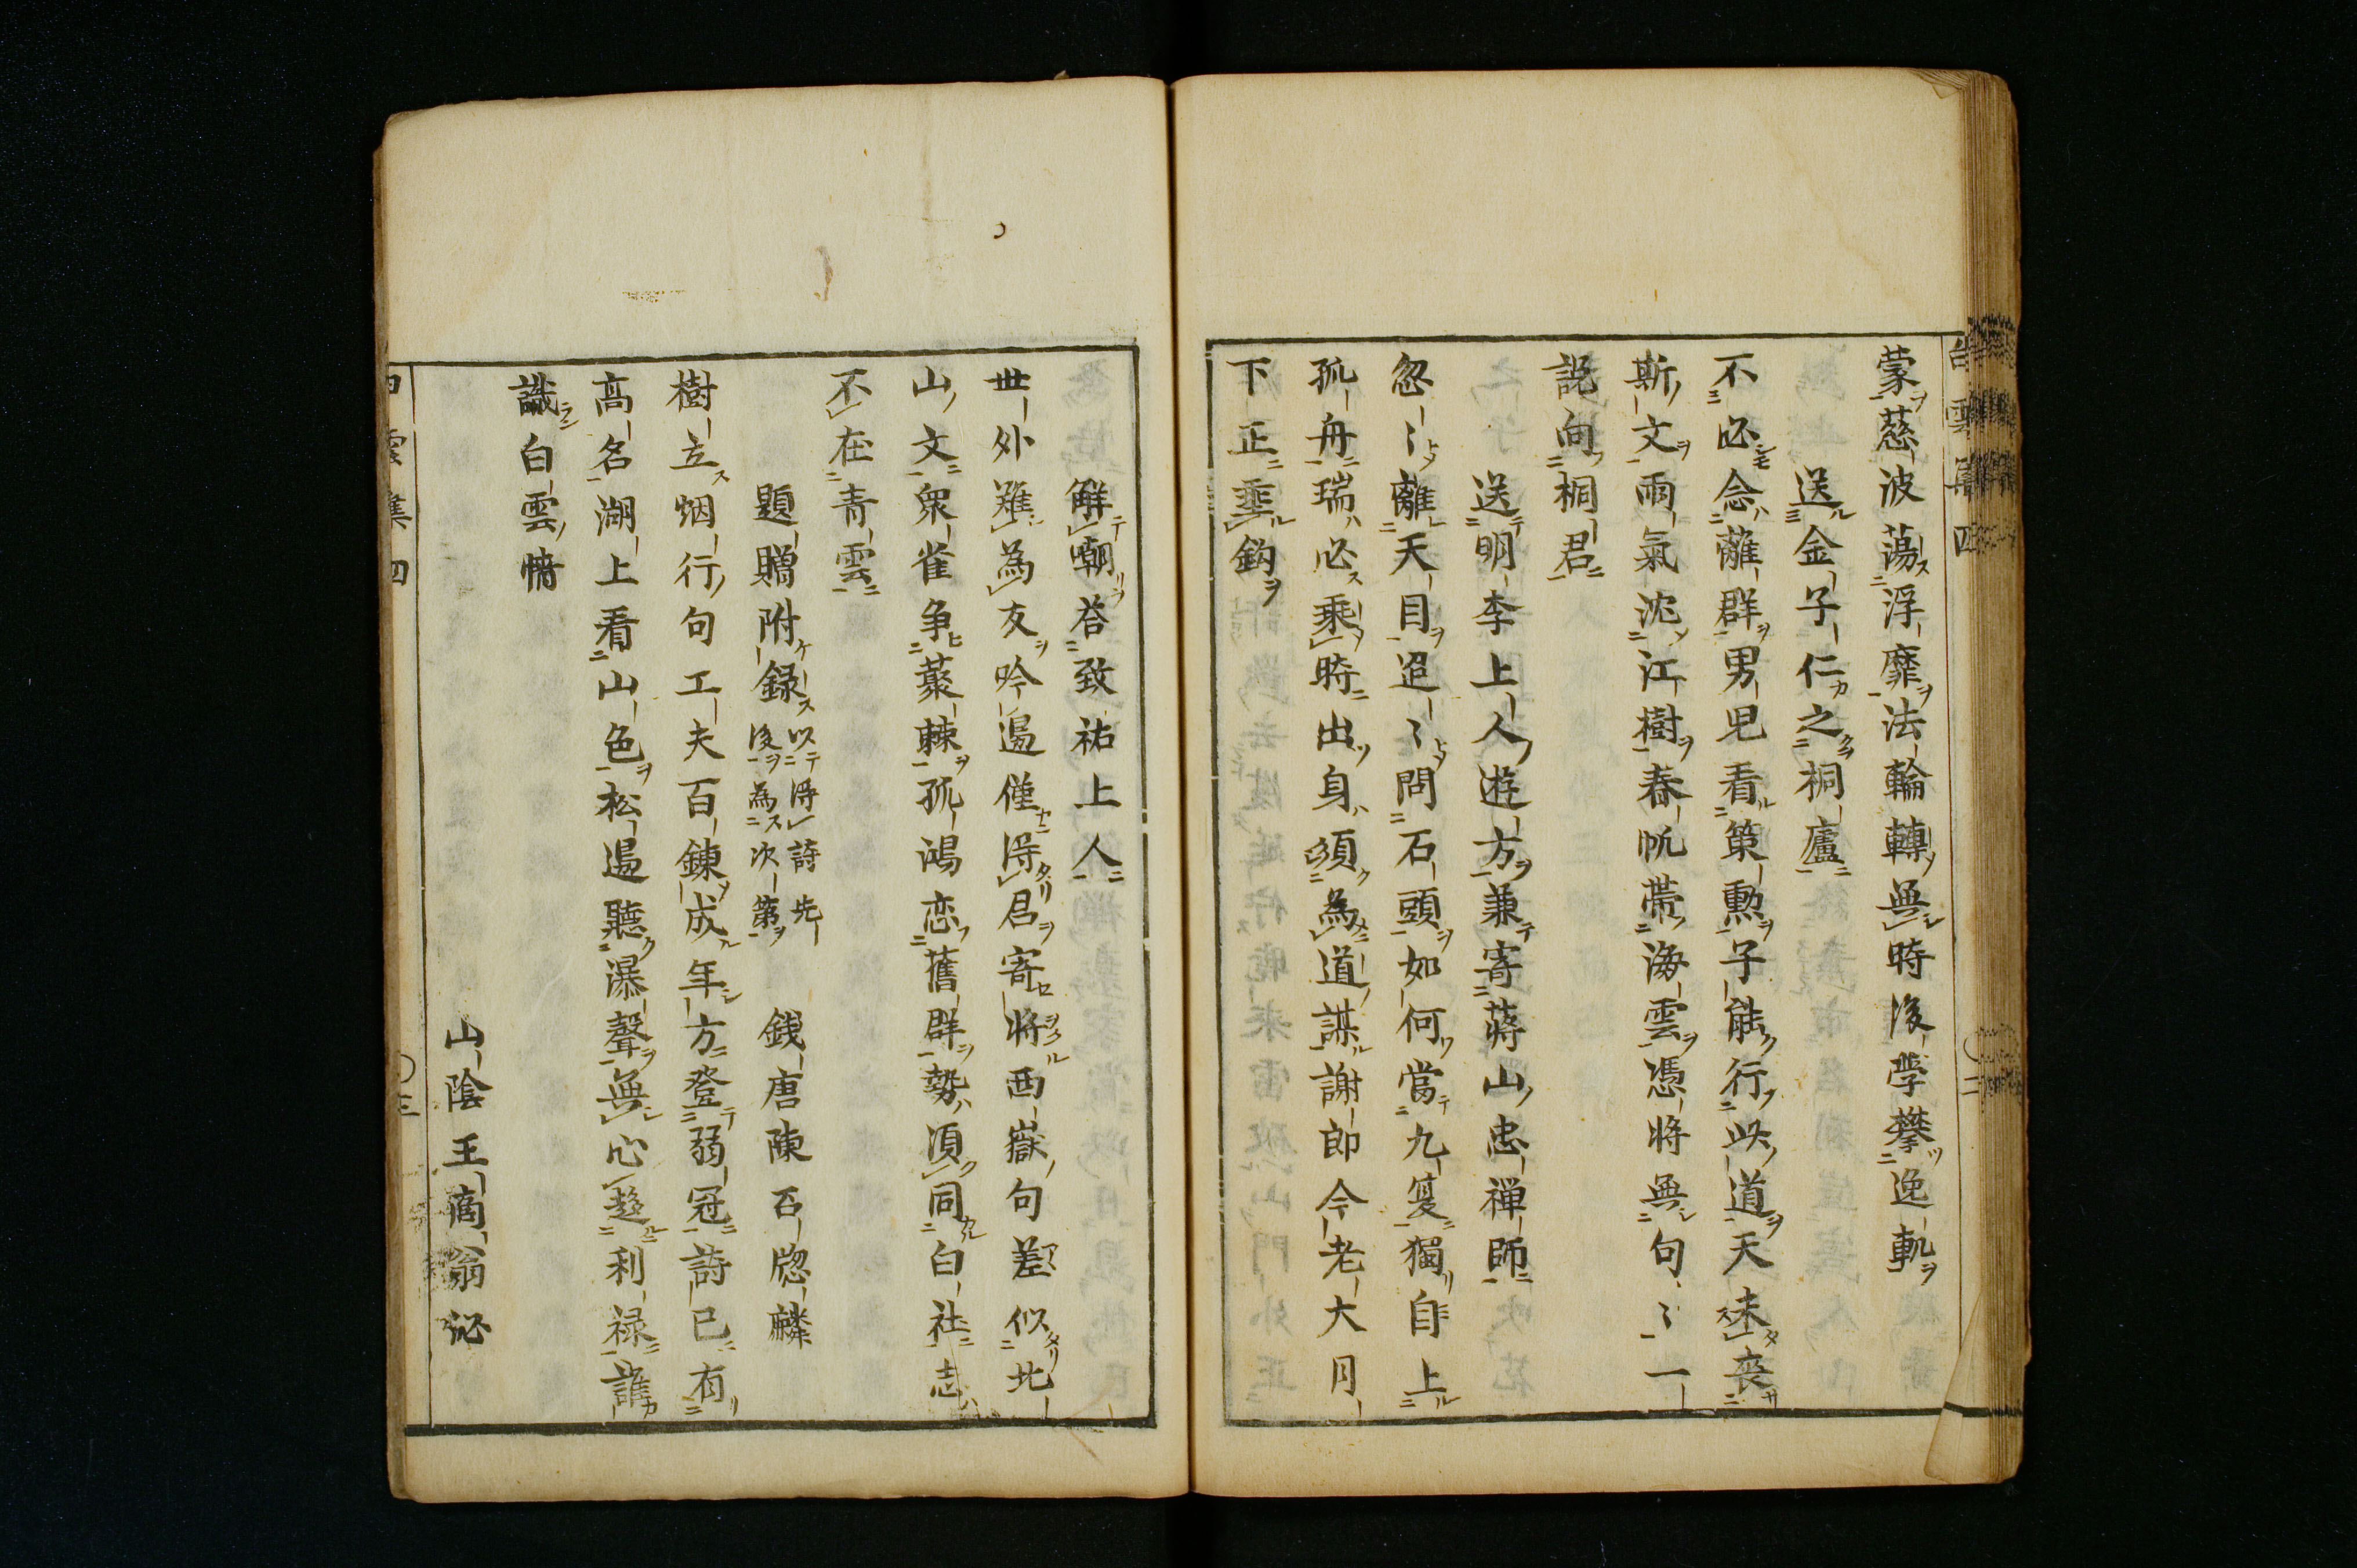 蒙慈波蕩浮靡法輪轉無時後學攀逸軌
送金子仁之桐廬
不必念離群男兒看策勲子能行此道天未喪
斯文雨氣沈江樹春帆帶海雲憑將無句〻一
説向桐君
送明李上人遊方兼寄蒋山忠禅師
忽〻離天目迢〻問石頭如何當九夏獨自上
孤舟瑞必乘時出身須為道謀謝郎今老大月
下正垂鈎
解嘲荅致祐上人
世外難為友吟邊僅得君寄將西嶽句差似北
山文衆雀争藂棘孤鴻恋舊群勢須同白社志
不在青雲
題贈附録
以得詩先
後為次第
錢唐陳石麟
樹立烟行句工夫百錬成年方登弱冠詩已有
髙名湖上看山色松邊聽瀑聲無心趍利禄誰
識白雲情
山陰王裔翁泌
白雲集四
二
三